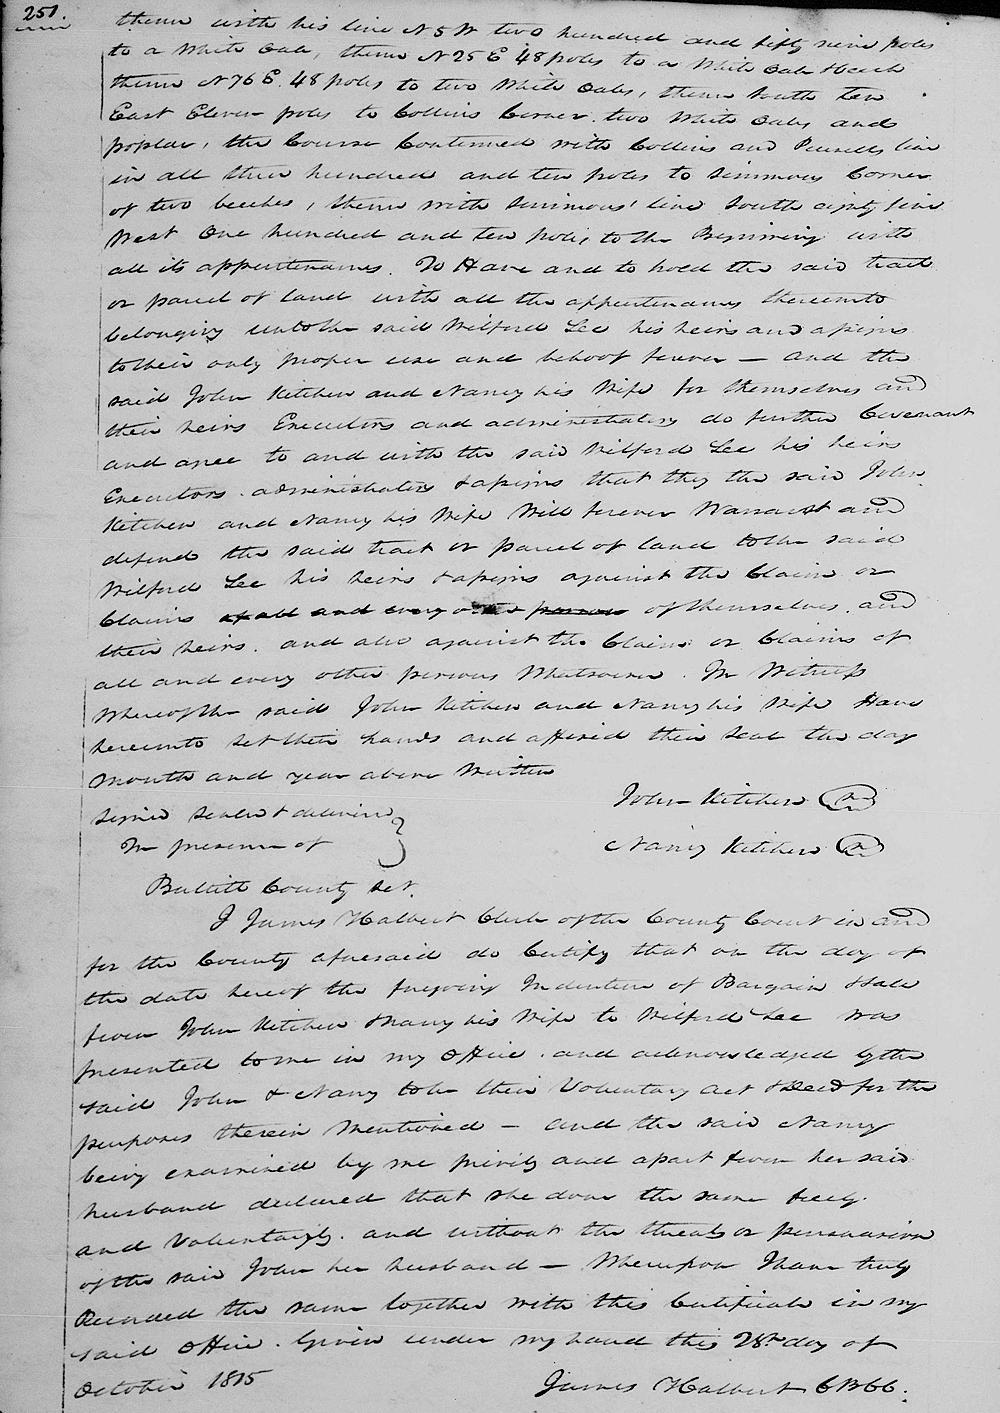 251.
thence with his line N 5 W two hundred and fifty nine poles
to a White Oak, thence N 25 E 48 poles to a White Oak & beech
thence N 76 E. 48 poles to two White Oaks, thence South ten
East Eleven poles to Collins Corner. two White Oaks and
poplar, the Course Continued with Collins and Pursells line
in all three hundred and ten poles to Simmons Corner
of two beeches, thence with Simmons' line South eighty five
West One hundred and ten poles to the Beginning with
all its appurtenances. To Have and to hold the said tract
or parcel of land with all the appurtenances thereunto
belonging unto the said Wilford Lee his heirs and assigns
to their only proper use and behoof forever — and the
said John Kitchen and Nancy his Wife for themselves and
their heirs Executors and administrators do further Covenant
and agree to and with the said Wilford Lee his heirs
Executors. administrators & assigns that they the said John
Kitchen and Nancy his Wife Will forever Warrant and
defend the said tract or parcel of land to the said
Wilford Lee his heirs & assigns against the Claim or
Claims of all and every other person of themselves. and
their heirs. and also against the Claim or Claims of
all and every other persons Whatsoever. In Witness
Whereof the said John Kitchen and Nancy his Wife Have
hereunto set their hands and affixed their seal the day
month and year above Written
John Kitchen
signed sealed & delivered
In presence of
Nancy Kitchen
Bullitt County Sct.
I James Halbert Clerk of the County Court in and
for the County aforesaid do Certify that on the day of
the date hereof the foregoing Indenture of Bargain & Sale
from John Kitchen & Nancy his Wife to Wilford Lee was
presented to me in my office. and acknowledged by the
said John & Nancy to be their Voluntary act & Deed for the
purposes therein Mentioned — and the said Nancy
being examined by me privily and apart from her said
husband declared that she done the same freely.
and Voluntarily. and without the threats or persuasion
of the said John her husband — Whereupon I have truly
Recorded the same together with this Certificate in my
said office. Given under my hand this 28th day of
October 1815
James Halbert CBCC.